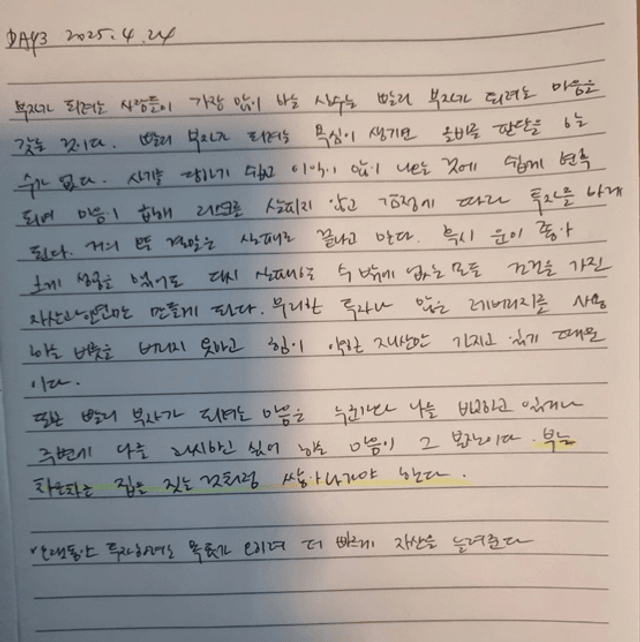 DAY3 2025.4.24
부자가 되려는 사람들이 가장 많이 하는 실수는 빨리 부자가 되려는 마음을
갖는 것이다. 빨리 부자가 되려는 욕심이 생기면 올바른 판단을 하는
수가 없다. 사기를 당하기 쉽고 이익이 많이 나는 것에 쉽게 현혹
되며 마음이 급해 리스크를 살피지 않고 감정에 따라 투자를 하게
된다. 거의 모든 결말은 실패로 끝나고 만다. 혹시 운이 좋아
크게 성공을 했어도 다시 실패할 수 밖에 없는 모든 조건을 가진
자산과 인연만 만들게 된다. 무리한 투자나 많은 레버리지를 사용
하는 버릇을 버리지 못하고 힘이 약한 재산만 가지고 있기 때문
이다.
또한 빨리 부자가 되려는 마음은 누군가와 나를 비교하고 있거나
주변에 나를 과시하고 싶어 하는 마음이 그 본질이다. 부는
차근차근 집을 짓는 것처럼 쌓아나가야 한다.
오랫동안 투자하려는 목표가 오히려 더 빠르게 자산을 늘려준다